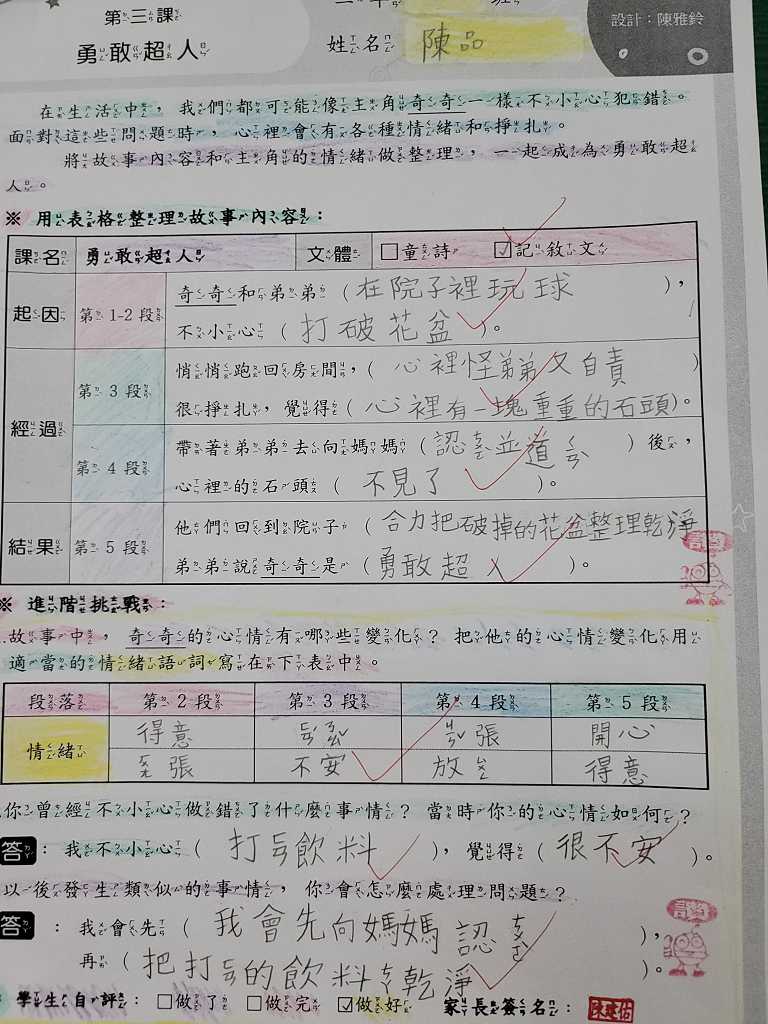 第三課
勇敢超人
設計：陳雅鈴
班
姓名 陳品
在生活中，我們都可能像主角奇奇一樣不小心犯錯。
面對這些問題時，心裡會有各種情緒和掙扎。
將故事內容和主角的情緒做整理，一起成為勇敢超
人。
※ 用表格整理故事內容：
課名 勇敢超人 文體 □童詩 ☑記敘文
起因 第1-2段 奇奇和弟弟（在院子裡玩球），
不小心（打破花盆）。
經過 第3段 悄悄跑回房間，（心裡怪弟弟又自責）
很掙扎，覺得（心裡有一塊重重的石頭）。
第4段 帶著弟弟去向媽媽（認ㄘㄨㄛˋ並道ㄑㄧㄢˋ）後，
心裡的石頭（不見了）。
結果 第5段 他們回到院子（合力把破掉的花盆整理乾淨
弟弟說奇奇是（勇敢超人）。
※ 進階挑戰：
故事中，奇奇的心情有哪些變化？把他的心情變化用
適當的情緒語詞寫在下表中。
段落 第2段 第3段 第4段 第5段
情緒 得意 張 開心
張 不安 放 得意
你曾經不小心做錯了什麼事情？當時你的心情如何？
答：我不小心（打ㄈㄢ飲料），覺得（很不安）。
以後發生類似的事情，你會怎麼處理問題？
答：我會先（我會先向媽媽認），
再（把打ㄈㄢ的飲料乾淨）。
學生自評：□做了 □做完 ☑做好 家長簽名：